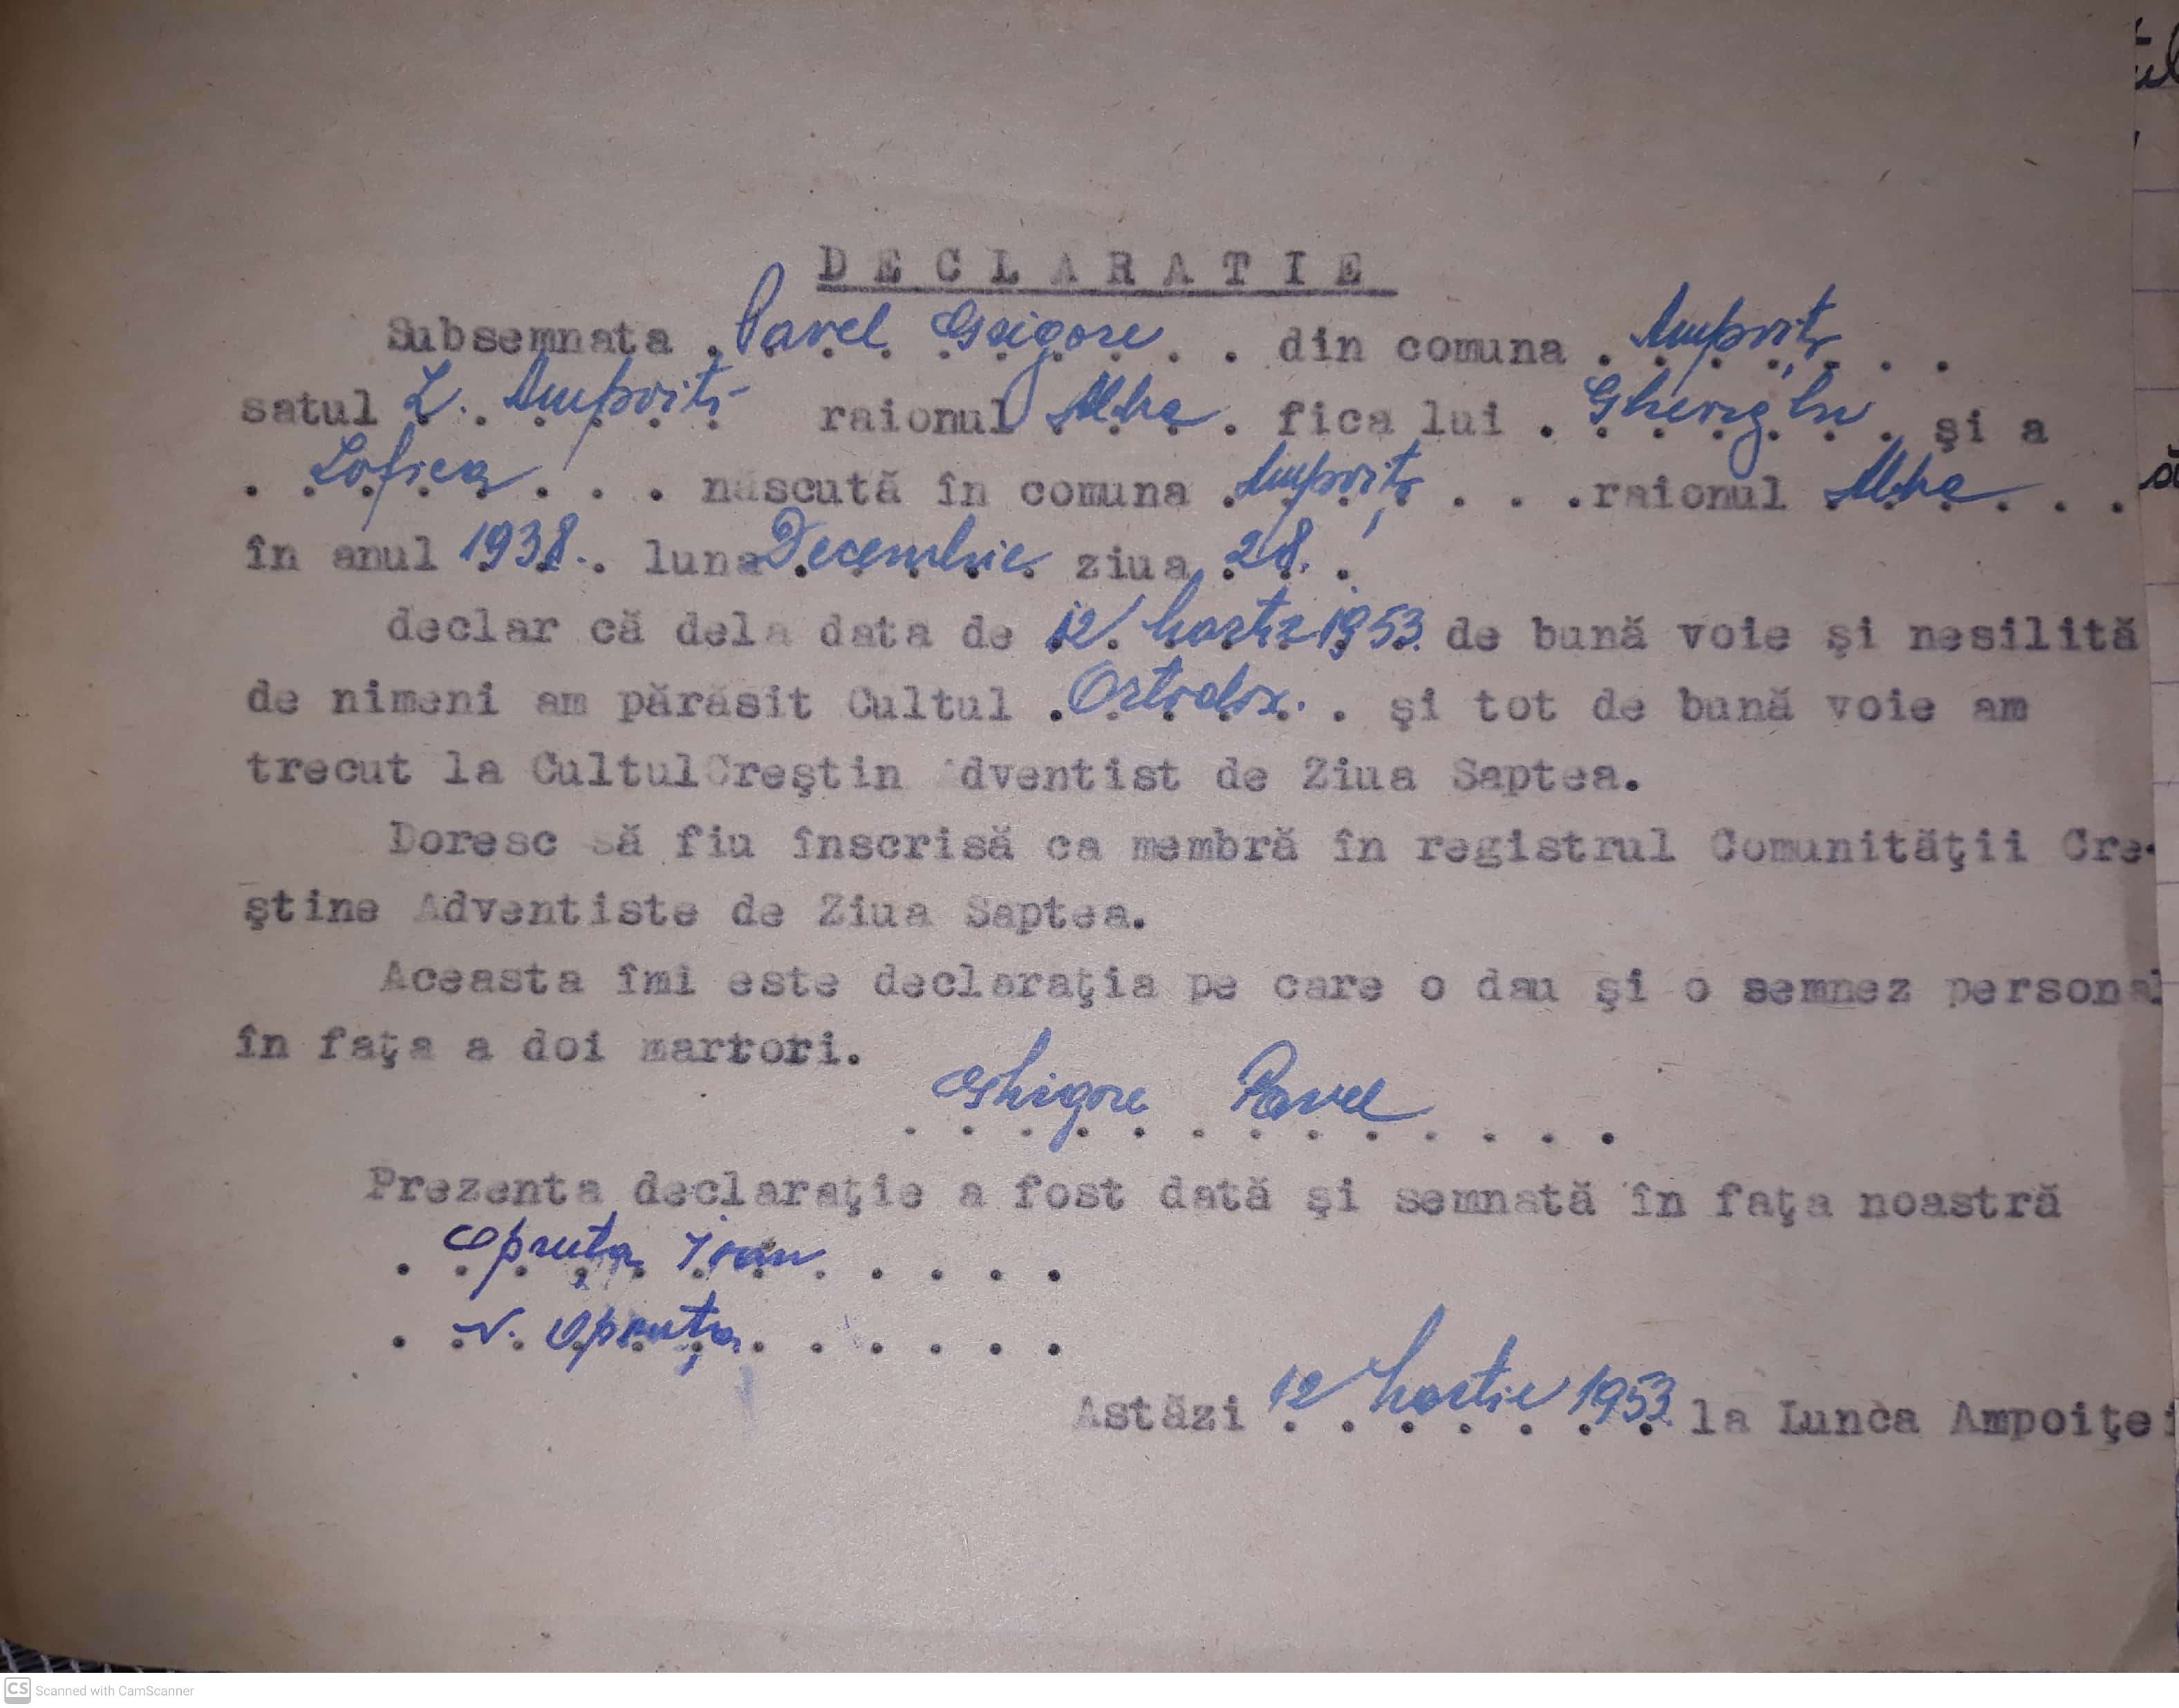 DECLARATIE
Subsemnata Pavel Grigore din comuna Ampoița
satul L. Ampoiți raionul Alba fica lui Gheorghe și a
Sofica născută în comuna Ampoița raionul Alba
în anul 1938. luna Decembrie ziua 28.
declar că dela data de 12. Martie 1953 de bună voie şi nesilită
de nimeni am părăsit Cultul Ortodox. şi tot de bună voie am
trecut la Cultul Creştin Adventist de Ziua Saptea.
Doresc să fiu înscrisă ca membră în registrul Comunităţii Cre-
ştine Adventiste de Ziua Saptea.
Aceasta îmi este declaraţia pe care o dau şi o semnez personal
în faţa a doi martori.
Ghigore Pavel
Prezenta declaraţie a fost dată şi semnată în faţa noastră
Opruța Ioan
N. Opruța
Astăzi 12 Martie 1953 la Lunca Ampoiţei
CS Scanned with CamScanner